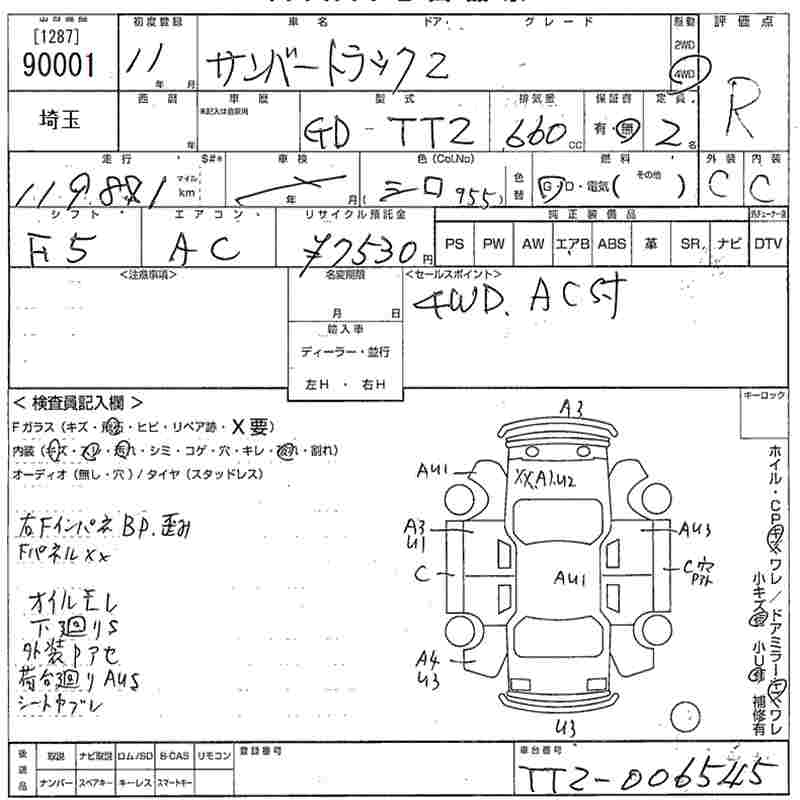 [1287]
90001
埼玉
初度登録
11
年 月
車名 ドア・ グレード
サンバートラック2
駆動
2WD
4WD
評価点
R
西暦
年
車歴
未記入は自家用
型式
GD-TT2
排気量
660 cc
保証書
有・無
定員
2名
走行 S#*
119881
マイル
km
車検
年 月
色(Col.No)
(シロ 955)
色替
燃料
G・D・電気( その他 )
外装
C
内装
C
シフト・
F5
エアコン・
AC
リサイクル預託金
¥7530円
純正装備品
PS PW AW エアB ABS 革 SR ナビ DTV
<注意事項>
名変期限
月 日
輸入車
ディーラー・並行
左H ・ 右H
<セールスポイント>
4WD. AC付
<検査員記入欄>
Fガラス(キズ・飛石・ヒビ・リペア跡・X要)
内装(キズ・スレ・汚れ・シミ・コゲ・穴・キレ・破れ・割れ)
オーディオ(無し・穴)/タイヤ(スタッドレス)
右Fインパネ BP.歪み
Fパネル XX
オイルモレ
下回りS
外装Pアセ
荷台回り AU5
シートヤブレ
キーロック
A3
AU1
XX.A1.U2
A3
U1
AU3
C
AU1
C穴
A4
U3
U3
ホイル・CPキズワレ/ドアミラーキズワレ
小キズ 小U 補修有
後送品
取説 ナビ取説 ロム/SD B-CAS リモコン
ナンバー スペアキー キーレス スマートキー
登録番号
車台番号
TT2-006545